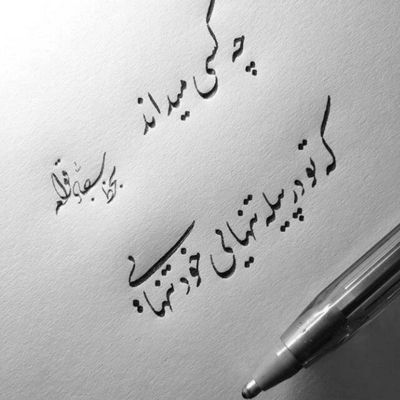 چه کسی میداند
که تو در پیله تنهایی خود تنهایی
بخط